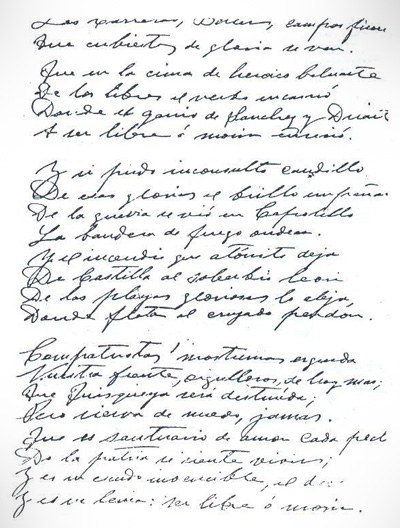 Las Carreras, Beler, campos fueron
Que cubiertos de gloria se ven.
Que en la cima de heroico baluarte
De los libres el verbo encarnó
Donde el genio de Sanchez y Duarte
A ser libre ó morir enseñó.
Y si pudo inconsulto caudillo
De esas glorias el brillo empañar
De la guerra se vió en Capotillo
La bandera de fuego ondear.
Y el incendio que atónito deja
De Castilla al soberbio leon
De las playas gloriosas le aleja,
Donde flota el cruzado pendon.
Compatriotas! mostremos erguida
Nuestra frente, orgullosos, de hoy mas;
Que Quisqueya será destruida;
Pero sierva de nuevo, jamas.
Que es santuario de amor cada pech
Do la patria se siente vivir;
Y es su escudo invencible, el
Y es su lema: ser libre ó morir.